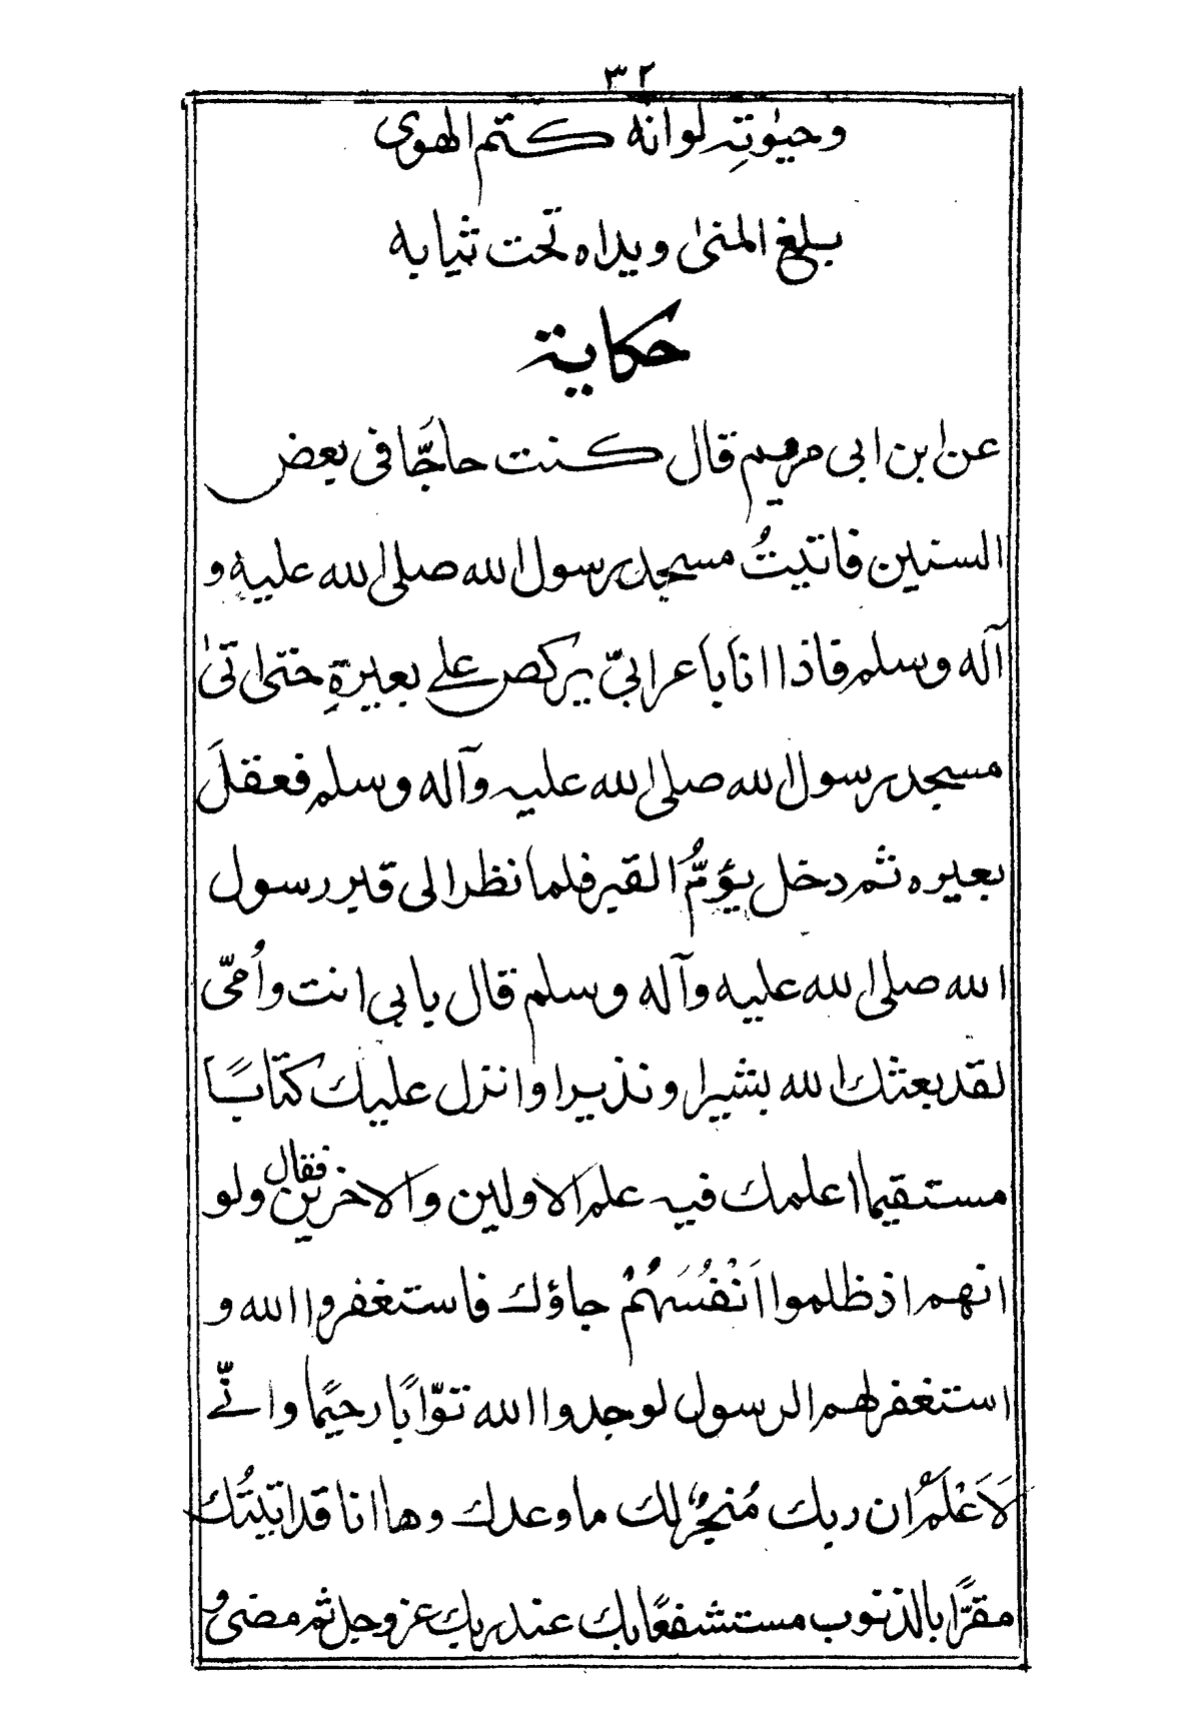 ٣٢
وحيٰوتِہ لو انه كتم الهوى
بلغ المنىٰ ويداه تحت ثيابه
حكاية
عن ابن ابى مريم قال كنت حاجًّا فى بعض
السنين فاتيتُ مسجد رسول الله صلى الله عليه و
آله وسلم فاذا انا باعرابىّ يركض علے بعيرةِ حتىٰ اتىٰ
مسجد رسول الله صلى الله عليه وآله وسلم فعقلَ
بعيره ثم دخل يؤمُّ القبر فلما نظر الى قبر رسول
الله صلى الله عليه وآله وسلم قال بابى انت وأُمّى
لقد بعثك الله بشيرا ونذيرا وانزل عليك كتابًا
مستقيما اعلمك فيه علم الاولين والاخرين فقال ولو
انهم اذ ظلموا اَنْفُسَهُمْ جاؤك فاستغفروا الله و
استغفر لهم الرسول لوجدوا الله توّابًا رحيمًا وانّے
لَاَعْلَمُ ان ربك مُنجزٌ لك ما وعدك وها انا قد اتيتُك
مقرًّا بالذنوب مستشفعًا بك عند ربك عز وجل ثم مضى و